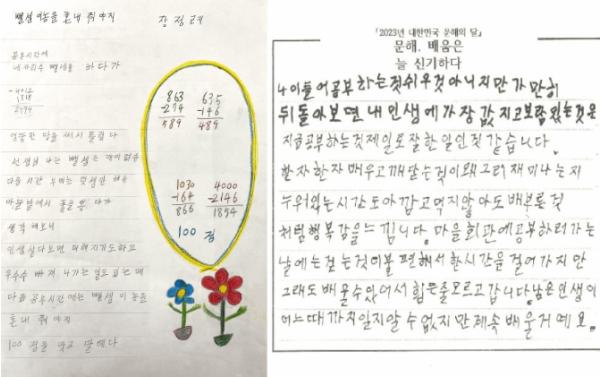 뺄셈 이놈을 혼내 줘야지
공부시간에
네자리수 뺄셈을 하다가
엉뚱한 답을 써서 틀렸다
선생님 나는 뺄셈은
다음 시간 부터는 덧셈만 해요
마을 밭에서 풀을 뽑다가
생각 해보니
인생 살다보면 더하기기도하고
우수수 빠져 나가는 일도 있는데
다음 공부시간에는 뺄셈 이놈을
혼내 줘야지
100 점을 맞고 말테다
863
-274
589
635
-146
489
1030
-164
866
4000
-2146
1854
100 점
「2023년 대한민국 문해의 달」
문해, 배움은
늘 신기하다
나이들어공부하는것쉬우것아니지만가만히
뒤돌아보면내인생에가장값지고보람있는것은
지금공부하는것제일로잘한일인것 같습니다.
한자한자배우고깨닫는것이왜그리재미나는지
누워있는시간도아깝고먹지않아도배부른것
처럼행복감을느낍니다. 마을회관에공부하러가는
날에는걷는것이불편해서한시간을걸어가지만
그래도배울수있어서힘든줄모르고갑니다.남은인생이
어느때까지일지알수없지만계속배울거예요.